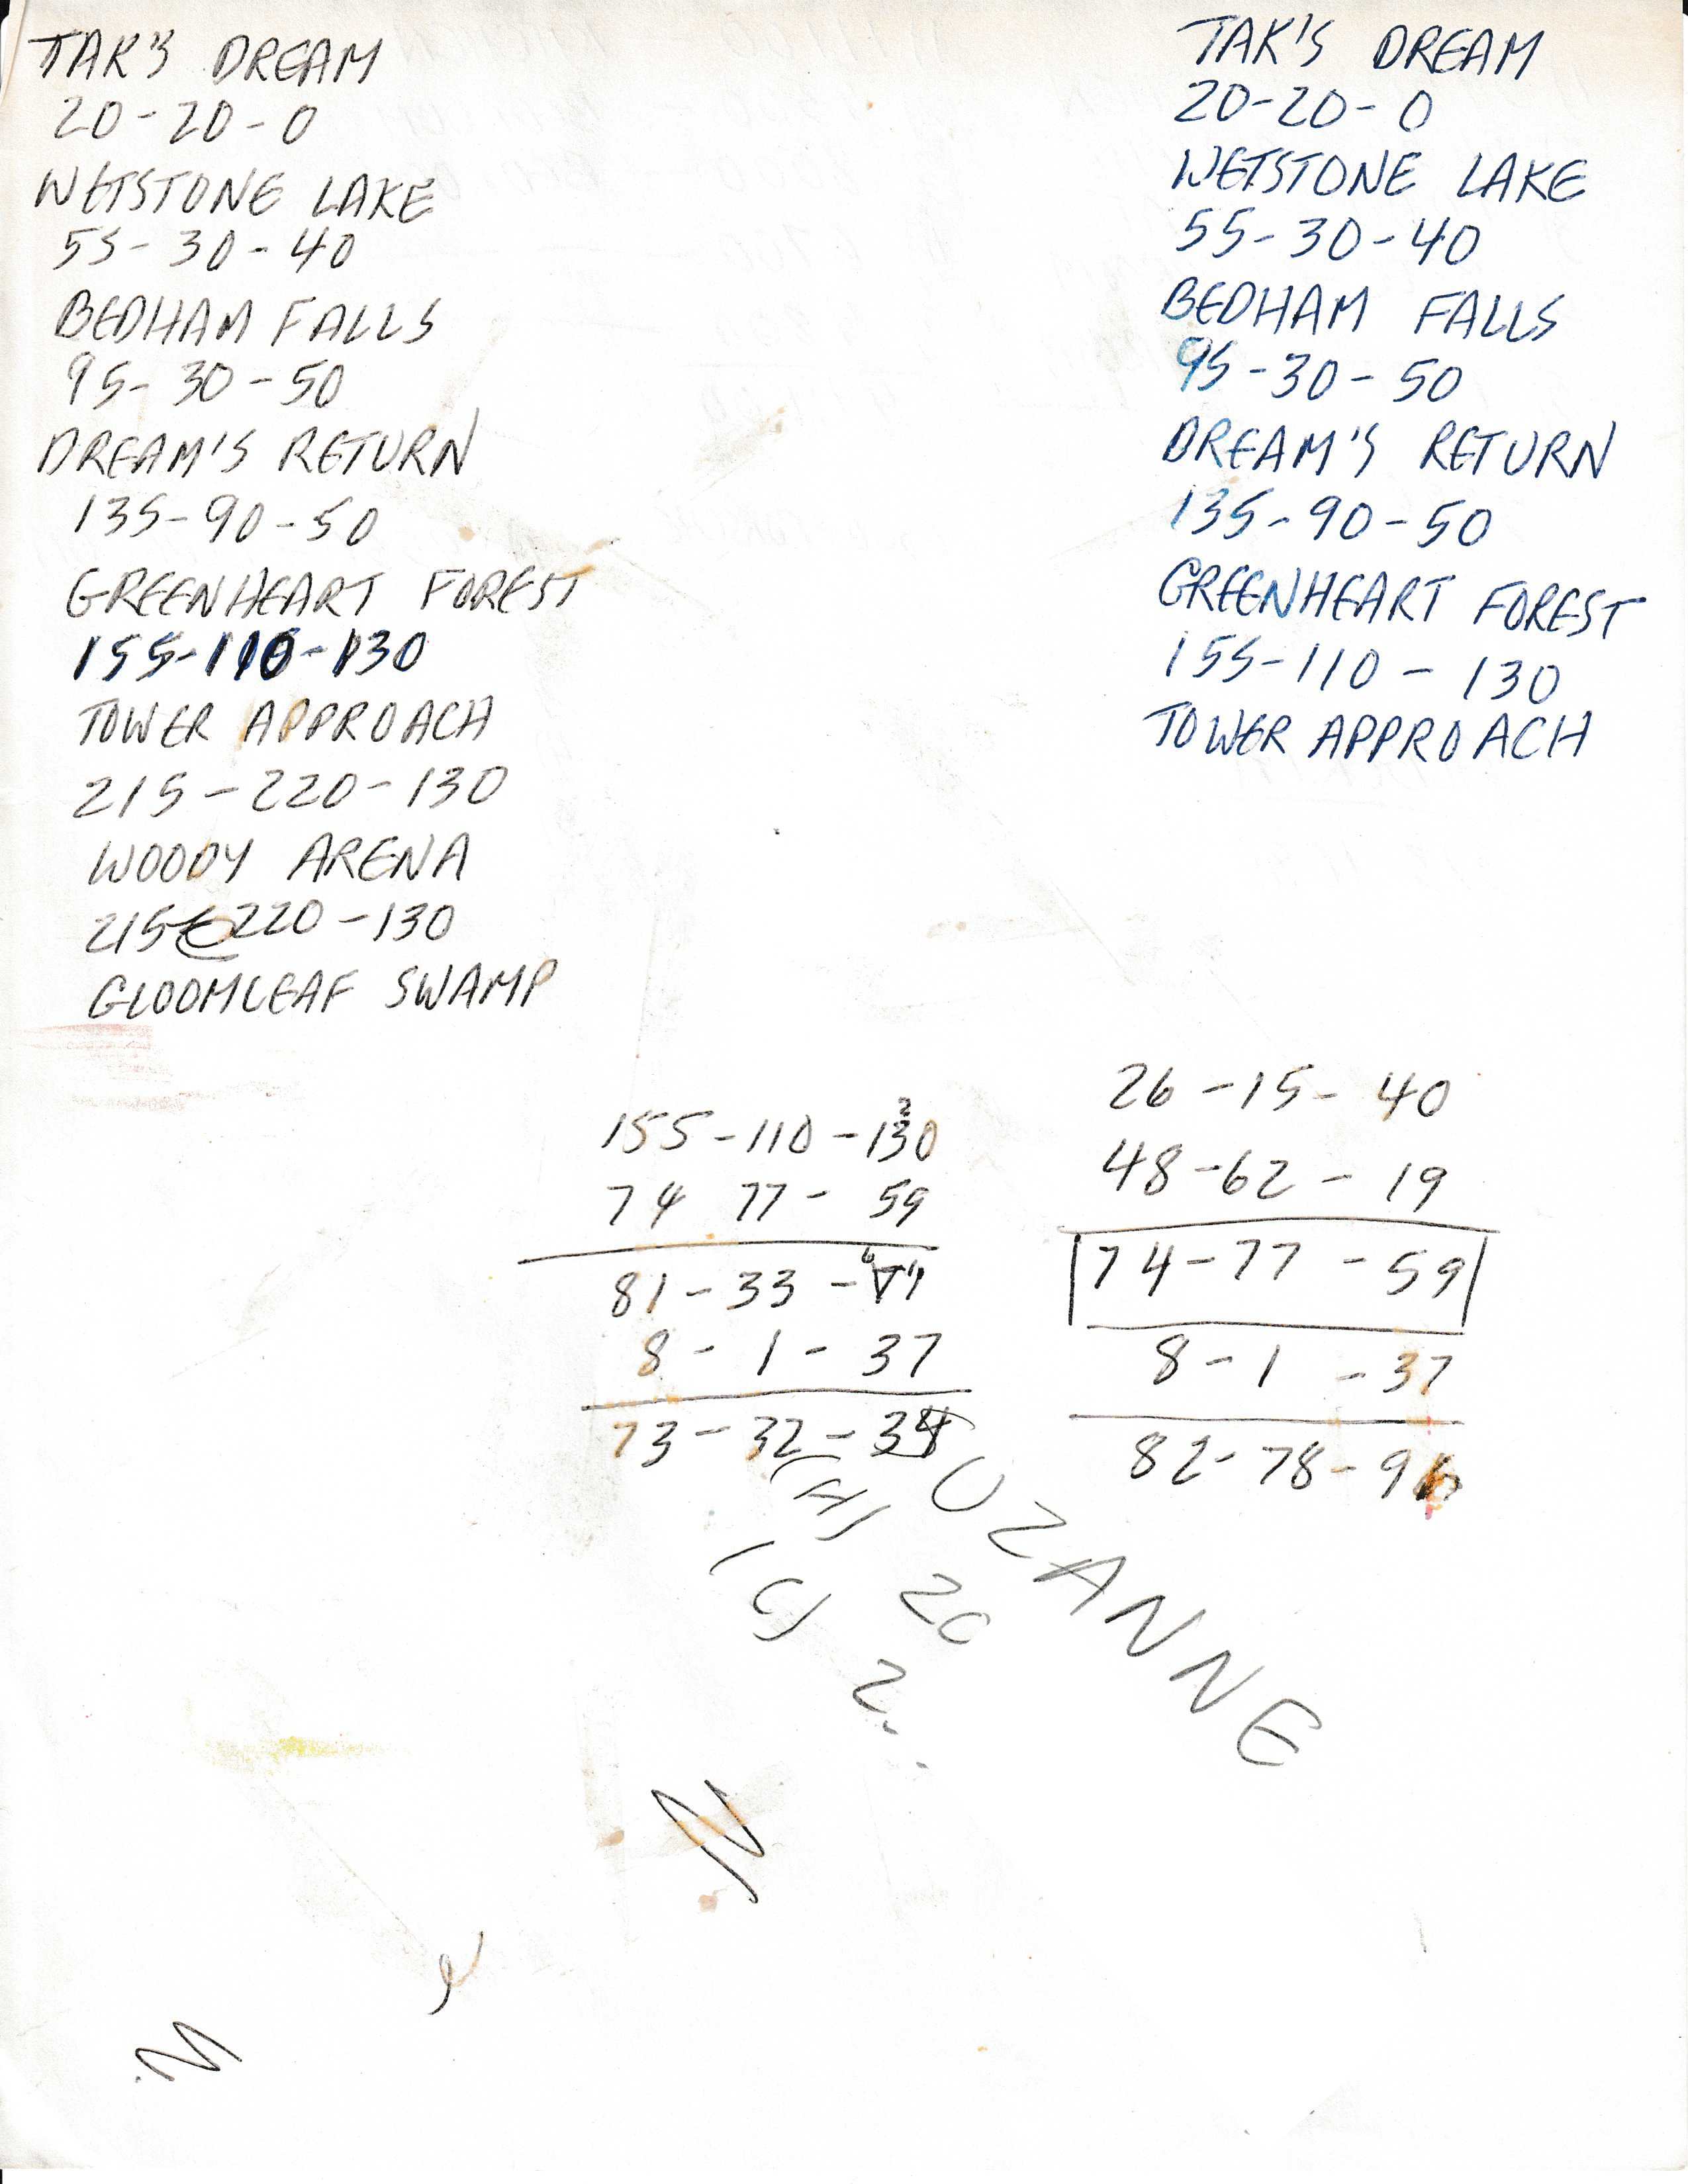 TAK'S DREAM
20-20-0
WETSTONE LAKE
55-30-40
BEDHAM FALLS
95-30-50
DREAM'S RETURN
135-90-50
GREENHEART FOREST
155-110-130
TOWER APPROACH
215-220-130
WOODY ARENA
215-220-130
GLOOMLEAF SWAMP
TAK'S DREAM
20-20-0
WETSTONE LAKE
55-30-40
BEDHAM FALLS
95-30-50
DREAM'S RETURN
135-90-50
GREENHEART FOREST
155-110-130
TOWER APPROACH
155-110-130
74 77-59
81-33-71
8-1-37
73-32-34
26-15-40
48-62-19
74-77-59
8-1-37
82-78-96
UZANNE
(H) 20
(C) 2
N